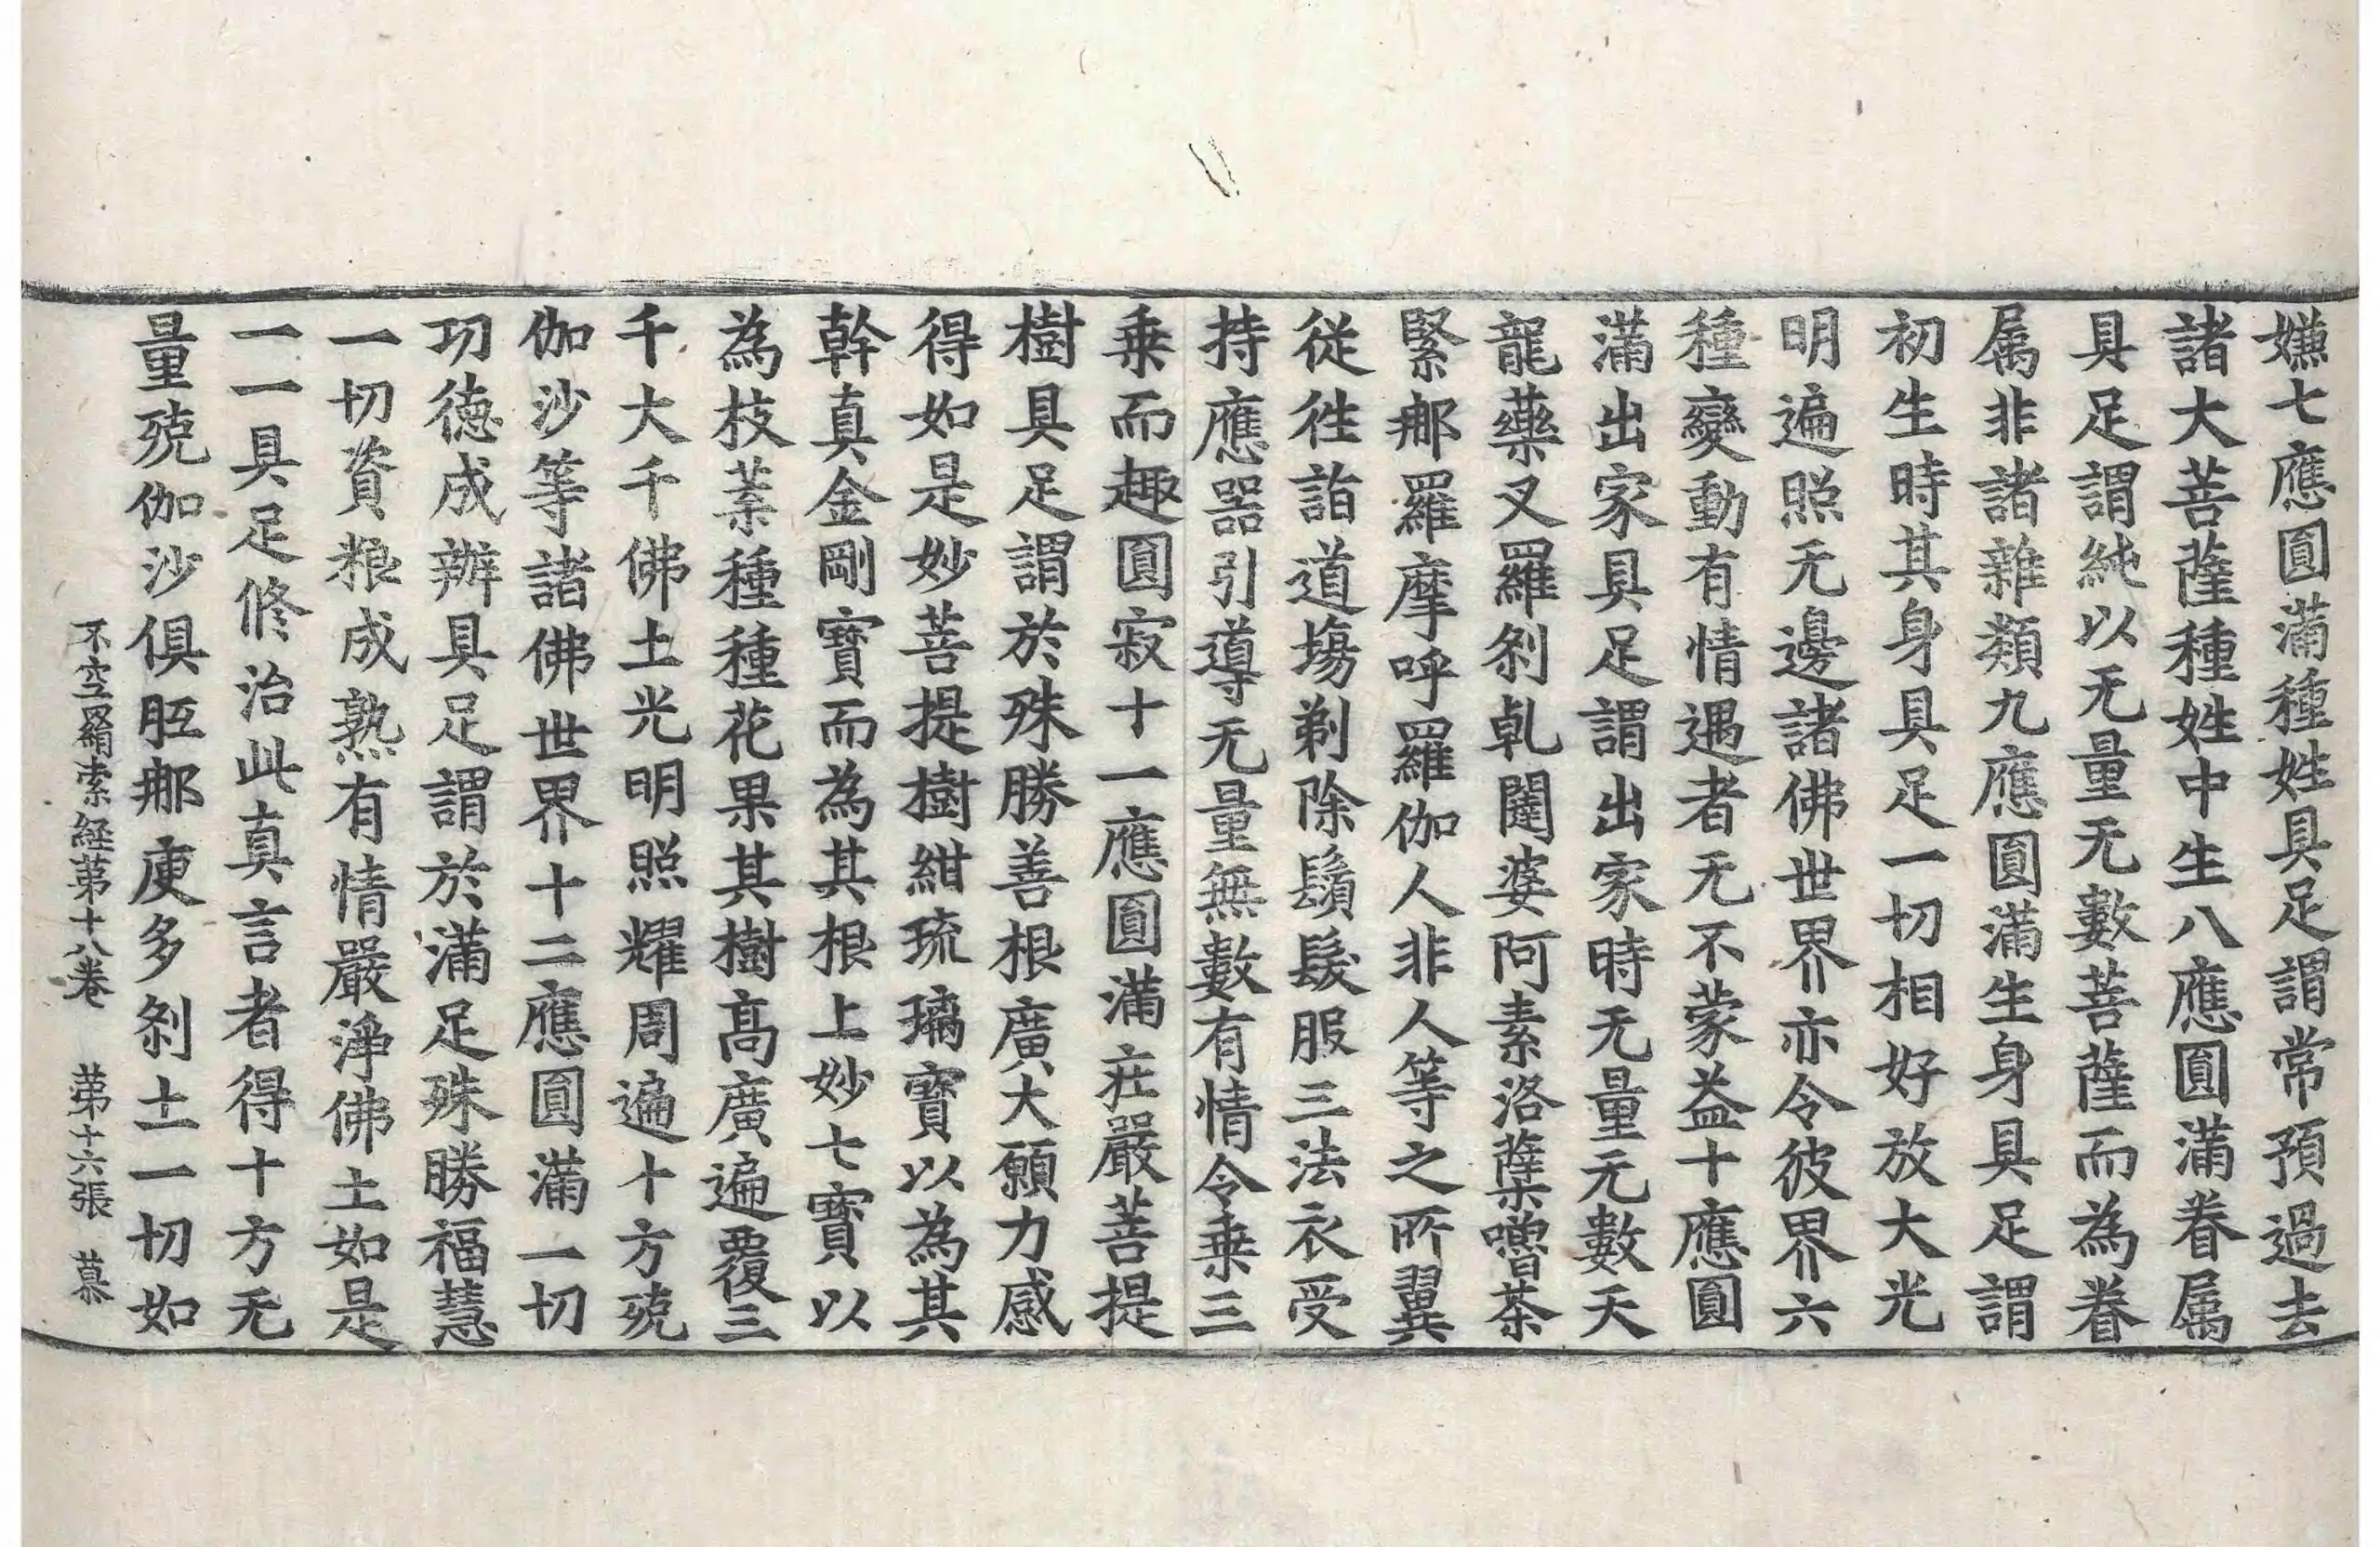 嫌七應圓滿種姓具足謂常預過去
諸大菩薩種姓中生八應圓滿眷属
具足謂純以无量无數菩薩而為眷
属非諸雜類九應圓滿生身具足謂
初生時其身具足一切相好放大光
明遍照无邊諸佛世界亦令彼界六
種變動有情遇者无不蒙益十應圓
滿出家具足謂出家時无量无數天
龍藥叉羅剎乹闥婆阿素洛蘗嚕茶
緊那羅摩呼羅伽人非人等之所翼
從徃詣道場剃除鬚髮服三法衣受
持應器引導无量無數有情令乗三
乗而趣圓寂十一應圓滿莊嚴菩提
樹具足謂於殊勝善根廣大願力感
得如是妙菩提樹紺琉璃寳以為其
幹真金剛寳而為其根上妙七寳以
為枝葉種種花果其樹髙廣遍覆三
千大千佛土光明照耀周遍十方殑
伽沙等諸佛世界十二應圓滿一切
功德成辦具足謂於滿足殊勝福慧
一切資粮成熟有情嚴淨佛土如是
一一具足修治此真言者得十方无
量殑伽沙俱胝那庾多剎土一切如
不空羂索経苐十八卷 苐十六張 慕